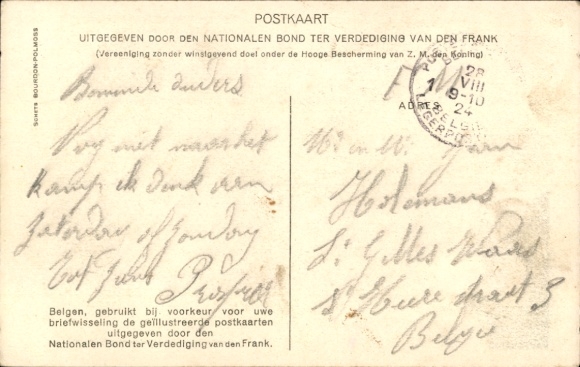 POSTKAART
UITGEGEVEN DOOR DEN NATIONALEN BOND TER VERDEDIGING VAN DEN FRANK
(Vereeniging zonder winstgevend doel onder de Hooge Bescherming van Z. M. den Koning)
SCHETS BOURDON-POLMOSS
F M
28
VIII
9-10
24
BELGI
LEGERPOS
ADRES
Beminde ouders
naar het
kamp ik denk van
Zaterdag of Zondag
Tot Ziens Prosper
Mr en Me Jean
Holemans
St Gilles Waas
Belgie
Belgen, gebruikt bij voorkeur voor uwe
briefwisseling de geïllustreerde postkaarten
uitgegeven door den
Nationalen Bond ter Verdediging van den Frank.